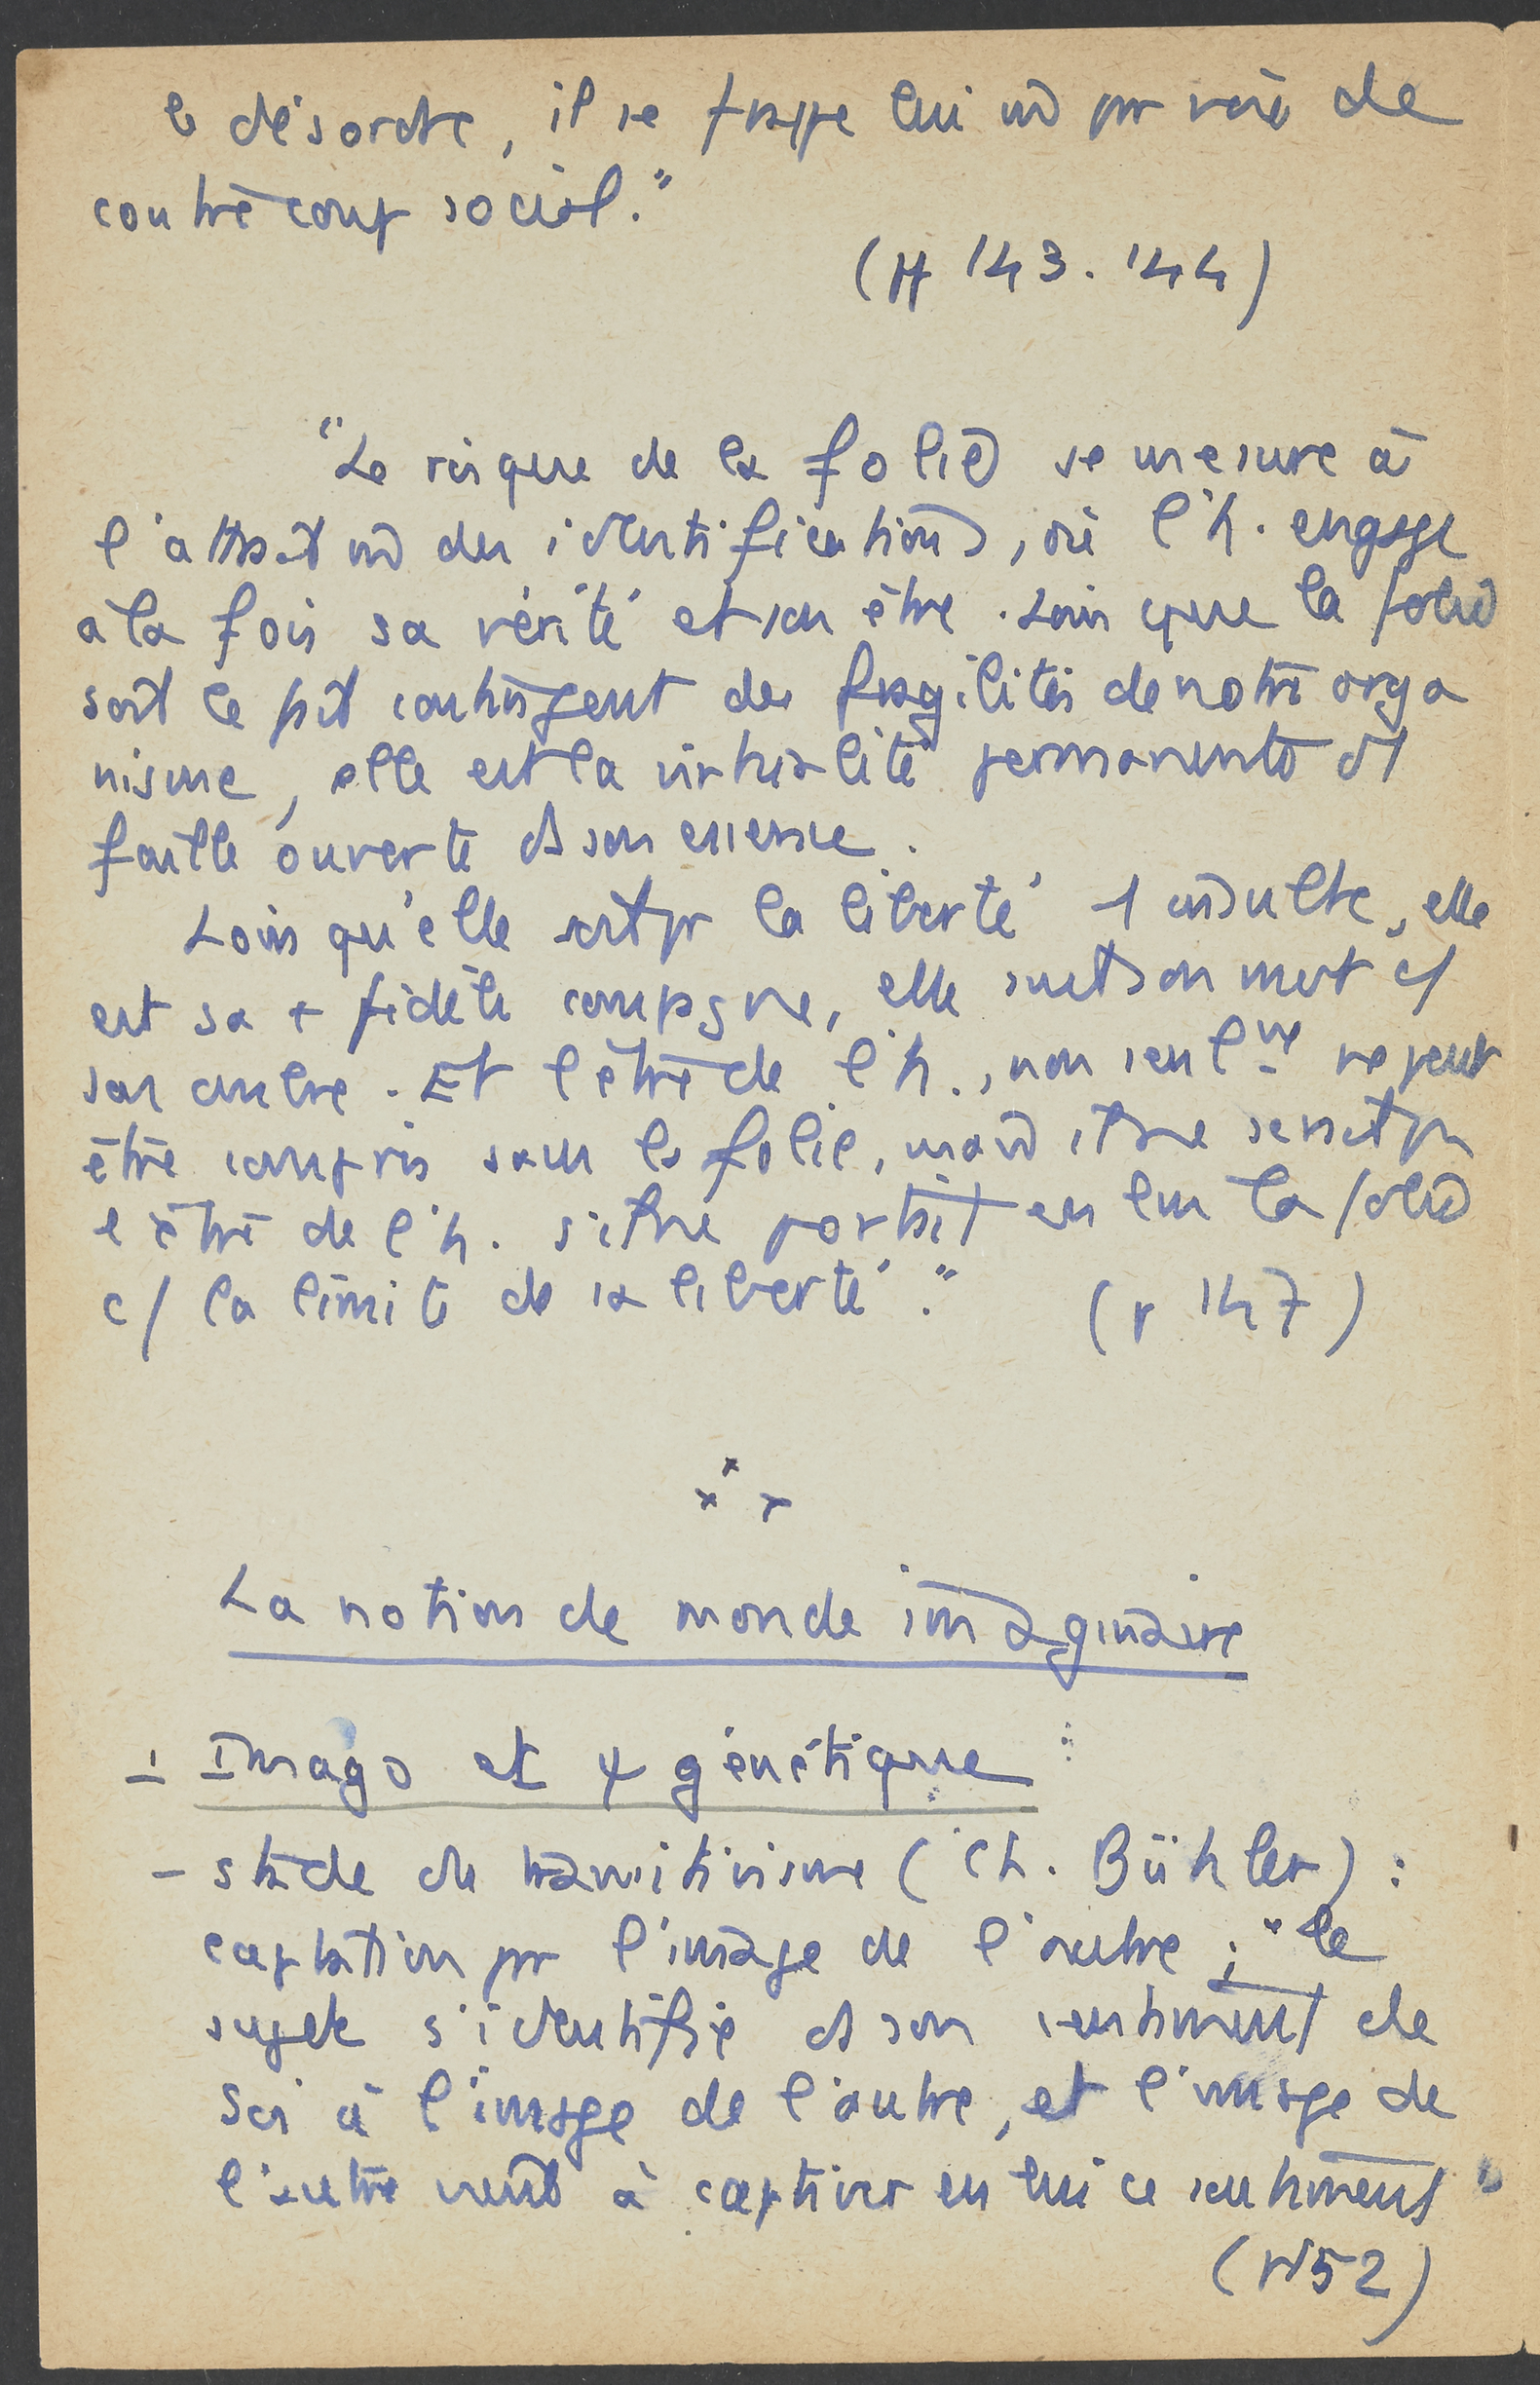 le désordre, il se frappe lui m̂ par voie de
contrecoup social."
(pp 143.144)
"Le risque de la folie se mesure à
l'attrait m̂ des identifications, où l'h. engage
à la fois sa vérité et son être. Loin que la folie
soit le fait contingent des fragilités de notre orga
nisme, elle est la virtualité permanente d'1
faille ouverte ds son essence.
Loin qu'elle soit pr la liberté 1 insulte, elle
est sa + fidèle compagne, elle suit son mvt c/
son ombre. Et l'être de l'h., non seulᵗ ne peut
être compris sans la folie, mais il ne serait pas
l'être de l'h. s'il ne portait en lui la folie
c/ la limite de sa liberté." (p 147)
La notion de monde imaginaire
1 Imago et ψ génétique :
- stade du transitivisme (Ch. Bühler) :
captation par l'image de l'autre ; "le
sujet s'identifie ds son sentiment de
Soi à l'image de l'autre, et l'image de
l'autre vient à captiver en lui ce sentiment"
(p152)